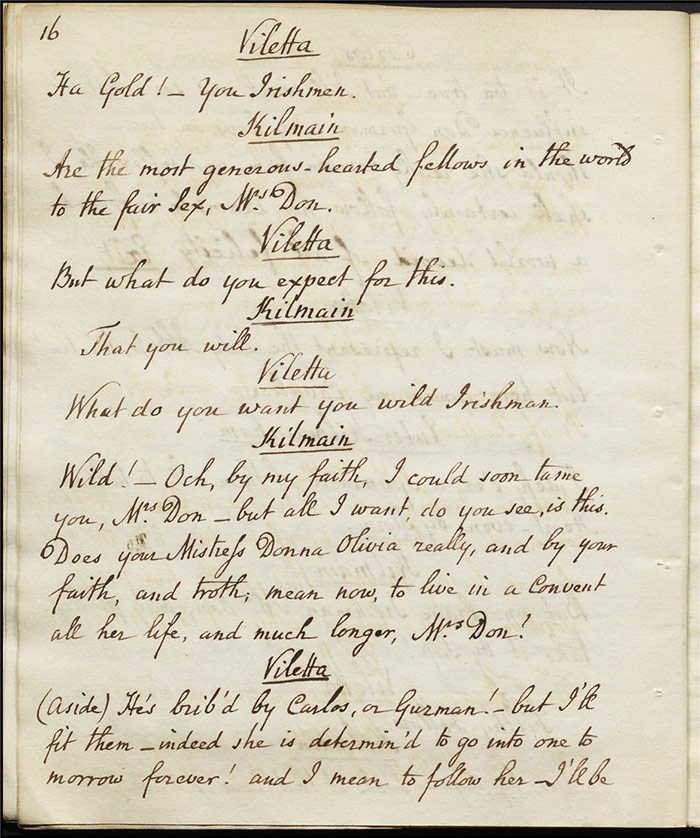 16
Viletta
Ha Gold! – You Irishmen.
Kilmain
Are the most generous-hearted fellows in the world
to the fair Sex, Mrs Don.
Viletta
But what do you expect for this.
Kilmain
That you will.
Viletta
What do you want you wild Irishman.
Kilmain
Wild! – Och, by my faith, I could soon tame
you, Mrs Don – but all I want do you see, is this.
Does your Mistress Donna Olivia really, and by your
faith, and troth, mean now, to live in a Convent
all her life, and much longer, Mrs Don!
Viletta
(Aside) He's brib'd by Carlos, or Guzman! – but I'll
fit them – indeed she is determin'd to go into one to
morrow forever! and I mean to follow her – I'll be